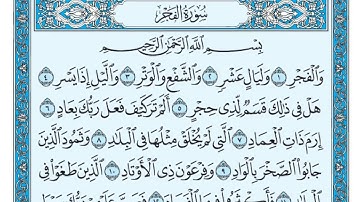 سُورَةُ الفَجْرِ
بِسْمِ اللَّهِ الرَّحْمَٰنِ الرَّحِيمِ
وَالْفَجْرِ ١ وَلَيَالٍ عَشْرٍ ٢ وَالشَّفْعِ وَالْوَتْرِ ٣ وَاللَّيْلِ إِذَا يَسْرِ ٤
هَلْ فِي ذَٰلِكَ قَسَمٌ لِّذِي حِجْرٍ ٥ أَلَمْ تَرَ كَيْفَ فَعَلَ رَبُّكَ بِعَادٍ ٦
إِرَمَ ذَاتِ الْعِمَادِ ٧ الَّتِي لَمْ يُخْلَقْ مِثْلُهَا فِي الْبِلَادِ ٨ وَثَمُودَ الَّذِينَ
جَابُوا الصَّخْرَ بِالْوَادِ ٩ وَفِرْعَوْنَ ذِي الْأَوْتَادِ ١٠ الَّذِينَ طَغَوْا فِي